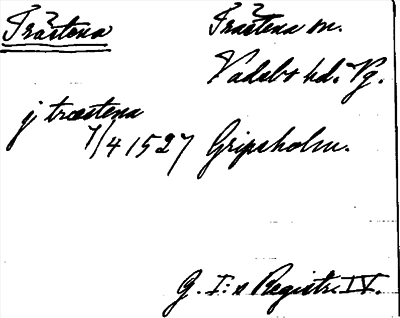 Trästena Trästena sn.
Vadsbo hd. Vg.
j træstena
7/4 1527 Gripsholm.
G. I:s Registr. IV.